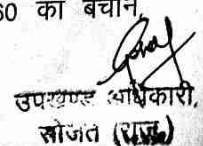 60 का बचान,
उपखण्ड अधिकारी,
सोजत (राज.)